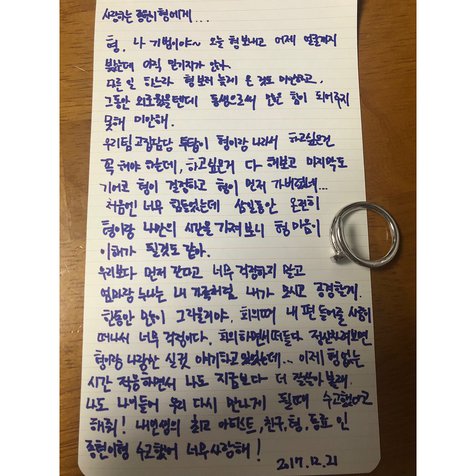 사랑하는 종현이형에게...
형, 나 기범이야~ 오늘 형 보내고 어제 얼굴까지
봤는데 아직 믿기지가 않아.
다른 일 하느라 형 보러 늦게 온 것도 미안하고,
그동안 외로웠을텐데 동생으로써 많은 힘이 되어주지
못해 미안해.
우리팀 고집담당 투탑이 형이랑 나라서 하고싶은건
꼭 해야 했는데, 하고싶은거 다 해보고 마지막도
기어코 형이 결정하고 형이 먼저 가버렸네...
처음엔 너무 힘들었는데 삼일동안 온전히
형이랑 나만의 시간을 가져보니 형 마음이
이해가 될것도 같아.
우리보다 먼저 간다고 너무 걱정하지 말고
엄마랑 누나는 내 가족처럼 내가 모시고 공경할게.
한동안 많이 그리울거야. 회의때 내 편 들어줄 사람이
떠나서 너무 걱정이다. 회의하면서 떠들다 정신차려보면
형이랑 나랑만 실컷 얘기하고 있었는데... 이제 형 없는
시간 적응하면서 나도 지금보다 더 잘살아볼래.
나도 나이들어 우리 다시 만나게 될때 수고했다고
해줘! 내 인생의 최고 아티스트, 친구, 형, 동료 인
종현이형 수고했어 너무 사랑해!
2017.12.21